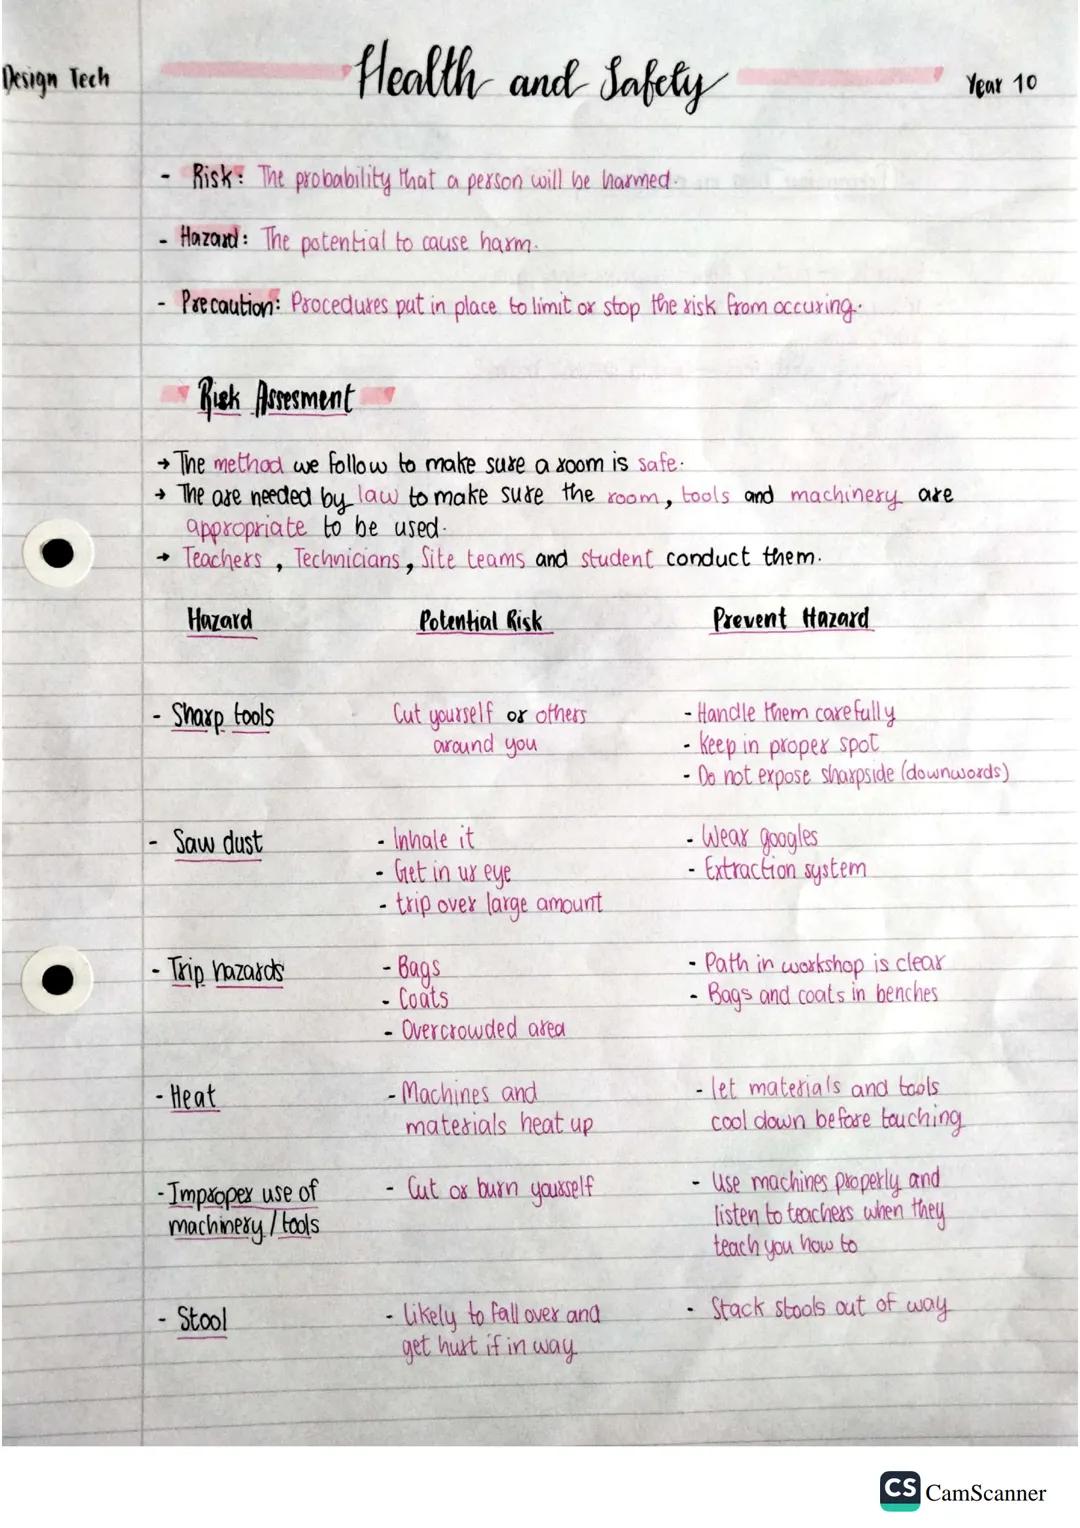 Design Tech Health and Safety Year 10
- Risk: The probability that a person will be harmed.
- Hazard: The potential to cause harm.
- Precaution: Procedures put in place to limit or stop the risk from occuring.
Risk Assesment
→ The method we follow to make sure a room is safe.
→ The are needed by law to make sure the room, tools and machinery are
appropriate to be used.
→ Teachers, Technicians, Site teams and student conduct them.
Hazard Potential Risk Prevent Hazard
- Sharp tools Cut yourself or others - Handle them carefully
around you - Keep in proper spot
- Do not expose sharpside (downwords)
- Saw dust - Inhale it - Wear googles
- Get in ur eye - Extraction system
- trip over large amount
- Trip hazards - Bags - Path in workshop is clear
- Coats - Bags and coats in benches
- Overcrowded area
- Heat - Machines and - let materials and tools
materials heat up cool down before touching
- Improper use of - Cut or burn yourself - Use machines properly and
machinery/tools listen to teachers when they
teach you how to
- Stool - Likely to fall over and - Stack stools out of way
get hurt if in way
CS CamScanner